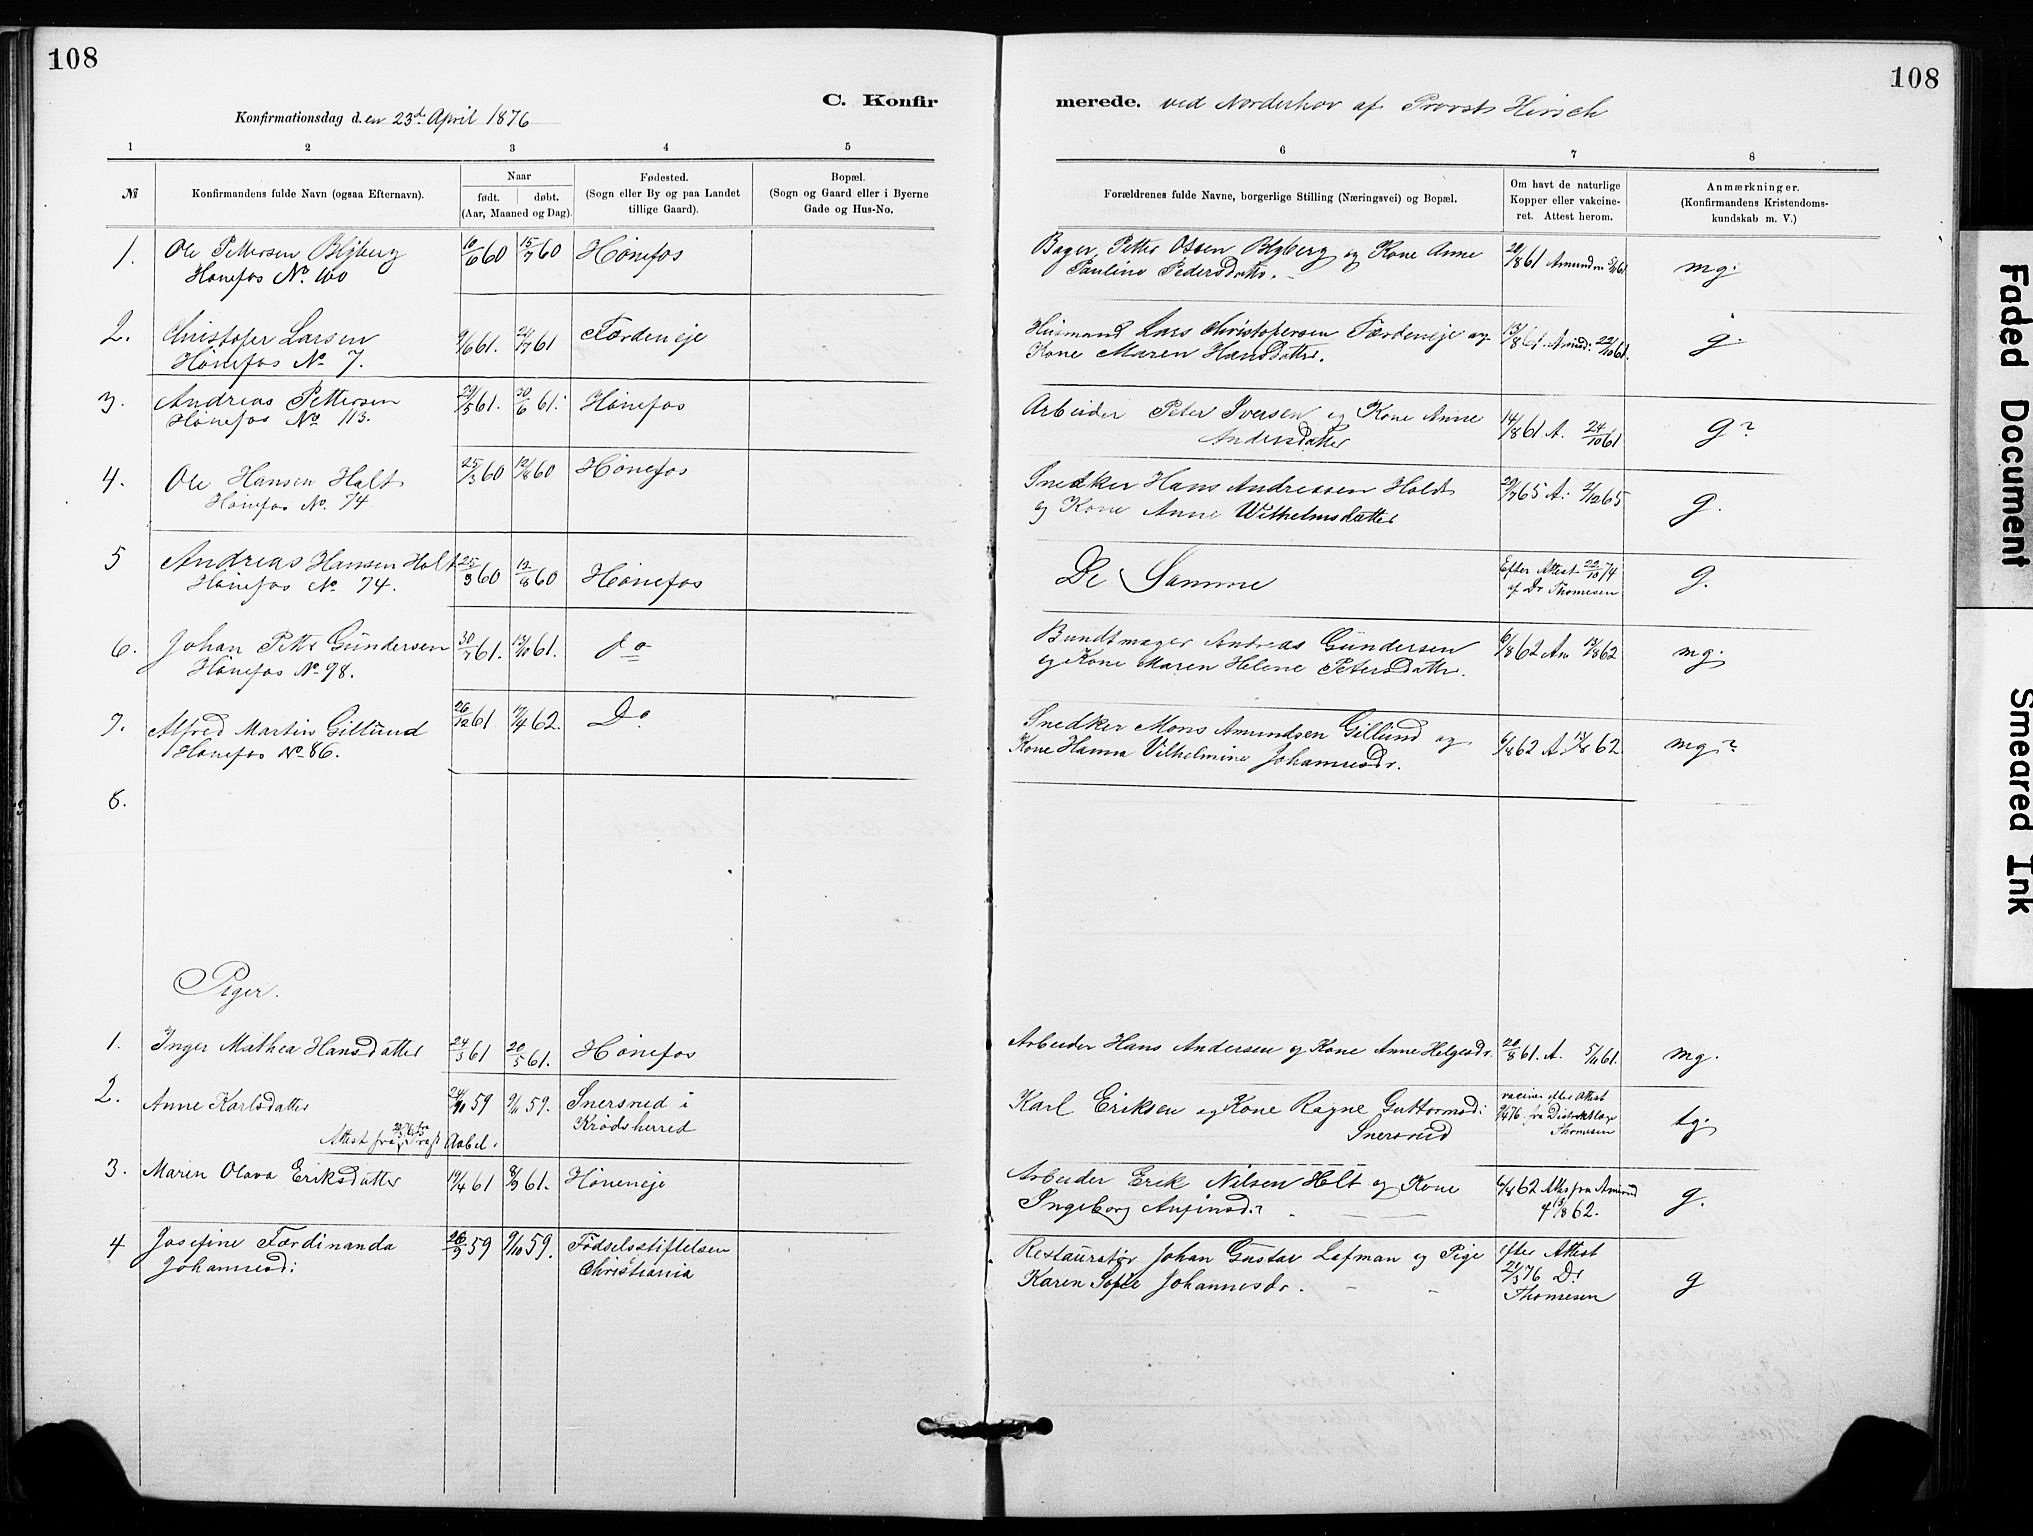 108
108
C. Konfirmerede. ved Norderhov af Provst Hirsch
Konfirmationsdag d. en 23d April 1876
1 2 3 4 5 6 7 8
№
Konfirmandens fulde Navn (ogsaa Efternavn).
Naar
født. døbt.
(Aar, Maaned og Dag).
Fødested.
(Sogn eller By og paa Landet
tillige Gaard).
Bopæl.
(Sogn og Gaard eller i Byerne
Gade og Hus-No.
Forældrenes fulde Navne, borgerlige Stilling (Næringsvei) og Bopæl.
Om havt de naturlige
Kopper eller vakcine-
ret. Attest herom.
Anmærkninger.
(Konfirmandens Kristendoms-
kundskab m. V.)
1. Ole Pettersen Blyberg 10/6 60 15/7 60 Hønefos Bager Petter Olsen Blyberg og Kone Anne 20/8 61 mg.
Hønefos No. 100 Pauline Pedersdatter.
2. Christofer Larsen 9/6 61. 21/7 61 Færdeneje Husmand Lars Christofersen Færdeneje og 13/8 61. Amund: 22/10 61. g.
Hønefos No 7. Kone Maren Hansdatter.
3. Andreas Pettersen 29/5 61. 30/6 61. Hønefos Arbeider Peter Iversen og Kone Anne 14/8 61 A. 24/10 61 g?
Hønefos No 113. Andersdatter
4. Ole Hansen Holt 25/3 60 12/8 60 Hønefos Snedker Hans Andreasen Holdt 20/7 65 A. 2/12 65 g.
Hønefos No. 74 og Kone Anne Wilhelmsdatter
5 Andreas Hansen Holt 25/3 60 12/8 60 Hønefos De Samme Efter Attest 22/10 74 g.
Hønefos No 74. af Dr Thomesen
6. Johan Petter Gundersen 30/7 61. 13/10 61. do Bundtmager Andreas Gundersen 6/8 62 Am 13/8 62 mg.
Hønefos No. 98. og Kone Maren Helene Petersdatter.
7. Alfred Martin Gillund 26/12 61. 17/4 62. Do Snedker Mons Amundsen Gillund og 6/8 62 A. 13/8 62. mg?
Hønefos No. 86. Kone Hanna Vilhelmine Johannesdr.
8.
Piger.
1. Inger Mathea Hansdatter 24/3 61 20/5 61. Hønefos Arbeider Hans Andersen og Kone Anne Helgesdr. 20/8 61. A. 5/11 61. mg.
2. Anne Karlsdatter 59 9/11 59. Snersrud i Karl Eriksen og Kone Ragne Guttormsd: efter Attest tg.
Krødsherred Snersrud fra Distriktlæge
Attest fra Aabel. Thomesen
3. Maren Olava Eriksdatter 14/4 61 61. Høneneje Arbeider Erik Nilsen Holt og Kone 6/8 62 Attest fra Amund g.
Ingeborg Anfinsd. 13/8 62.
4 Josefine Færdinanda 26/9 59 9/10 59. Fødselsstiftelsen Restauratør Johan Gustav Lofman og Pige efter Attest g
Johannesd: Christiania Karen Sofie Johannesdr. 21/3 76 Dr
Thomesen
Faded Document
Smeared Ink